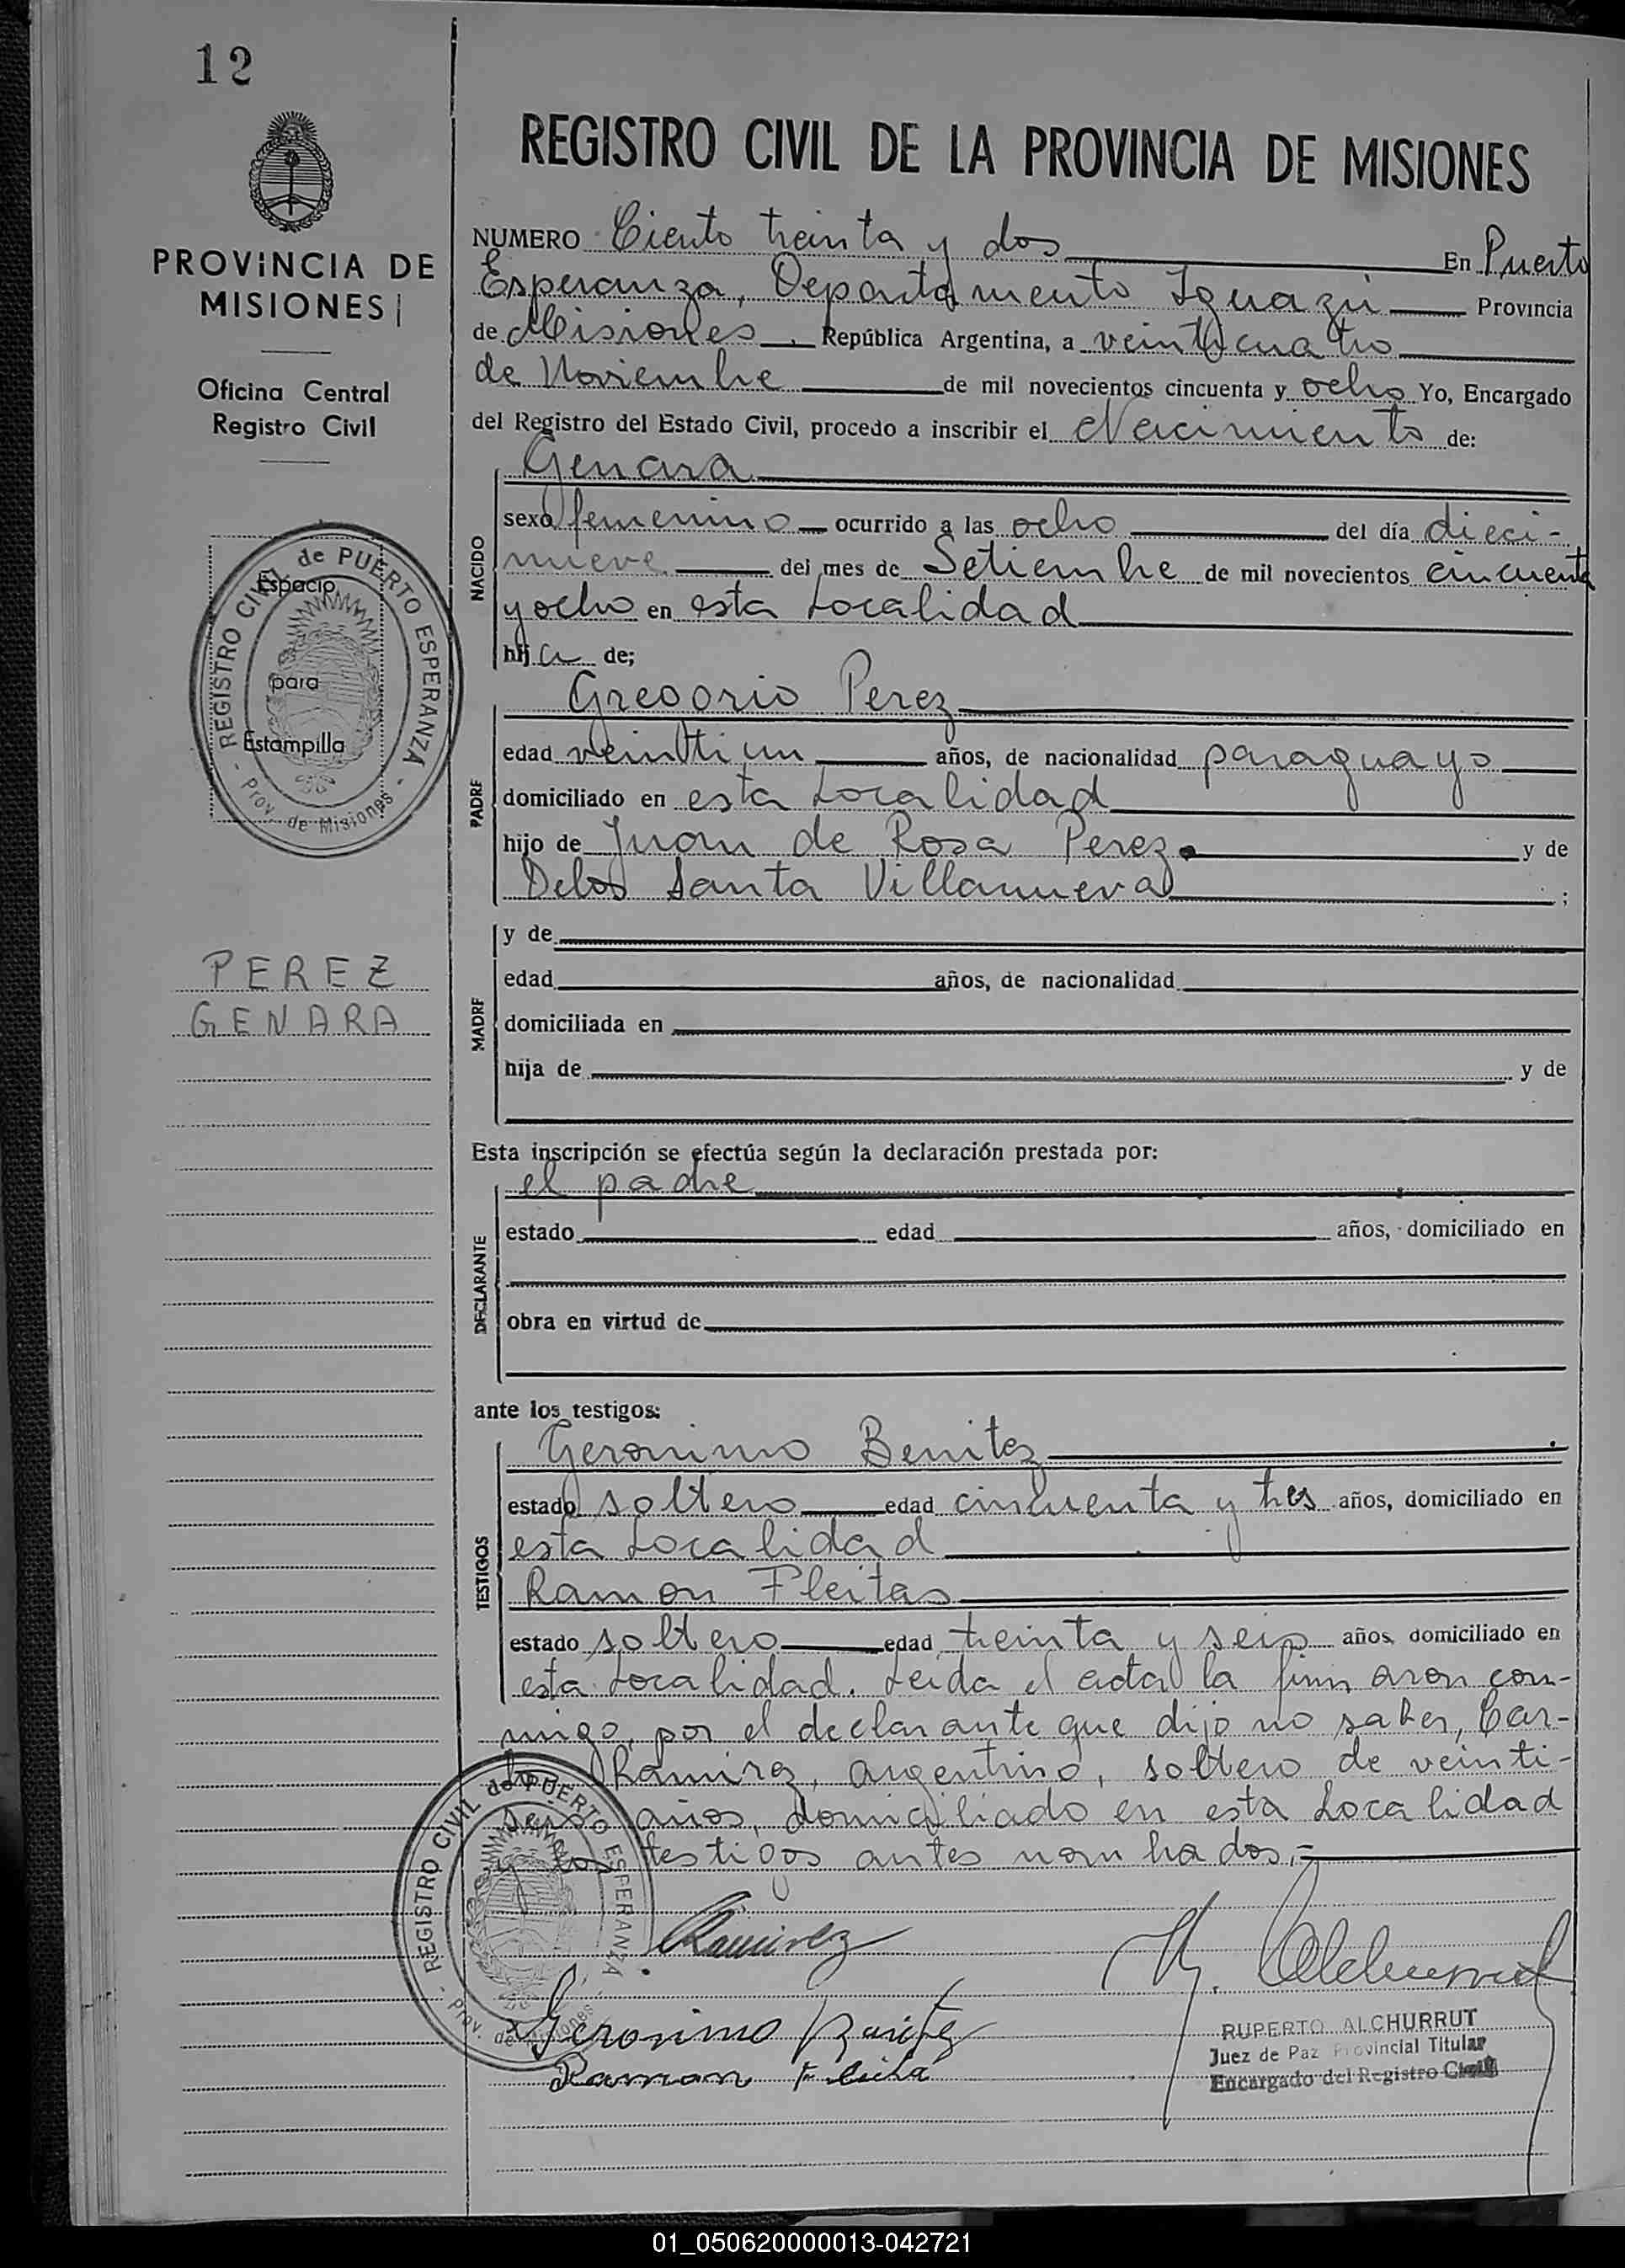 12
PROVINCIA DE
MISIONES
Oficina Central
Registro Civil
REGISTRO CIVIL de PUERTO ESPERANZA
- Prov. de Misiones -
Espacio
para
Estampilla
PEREZ
GENARA
REGISTRO CIVIL DE LA PROVINCIA DE MISIONES
NUMERO Ciento treinta y dos En Puerto
Esperanza, Departamento Iguazú Provincia
de Misiones, República Argentina, a veinticuatro
de Noviembre de mil novecientos cincuenta y ocho Yo, Encargado
del Registro del Estado Civil, procedo a inscribir el Nacimiento de:
NACIDO
Genara
sexo femenino ocurrido a las ocho del día dieci-
nueve del mes de Setiembre de mil novecientos cincuenta
y ocho en esta Localidad
hija de;
PADRE
Gregorio Perez
edad veintiun años, de nacionalidad paraguayo
domiciliado en esta Localidad
hijo de Juan de Rosa Perez y de
Delos Santa Villanueva ;
MADRE
y de
edad años, de nacionalidad
domiciliada en
hija de y de
Esta inscripción se efectúa según la declaración prestada por:
DECLARANTE
el padre
estado edad años, domiciliado en
obra en virtud de
ante los testigos:
TESTIGOS
Geronimo Benitez
estado soltero edad cincuenta y tres años, domiciliado en
esta Localidad
Ramon Fleitas
estado soltero edad treinta y seis años, domiciliado en
esta Localidad. Leida el acta la firmaron con-
migo, por el declarante que dijo no saber, Car-
los Ramirez, argentino, soltero de veinti-
seis años, domiciliado en esta Localidad
y los testigos antes nombrados.=
REGISTRO CIVIL de PUERTO ESPERANZA
- Prov. de Misiones -
Ramirez
Geronimo Benitez
Ramon Fleita
RUPERTO ALCHURRUT
Juez de Paz Provincial Titular
Encargado del Registro Civil
01_050620000013-042721